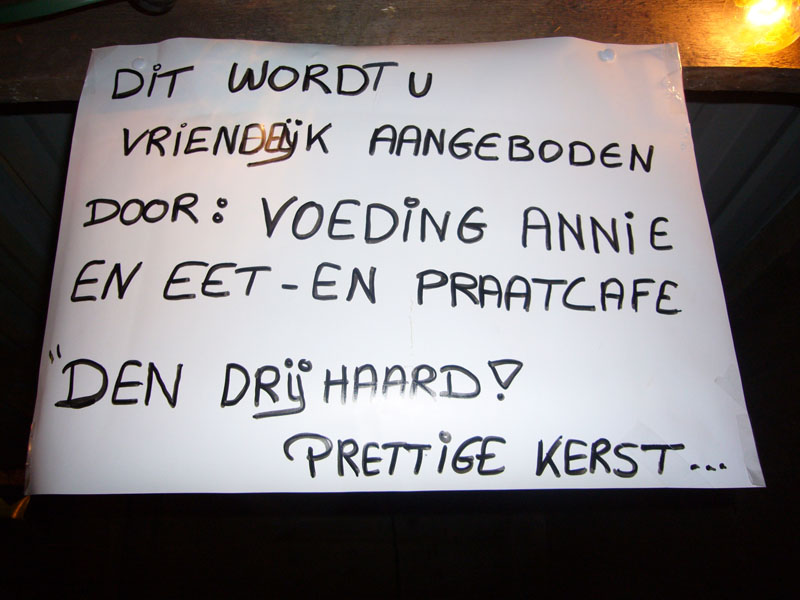 DIT WORDT U
VRIENDELIJK AANGEBODEN
DOOR: VOEDING ANNIE
EN EET-EN PRAATCAFE
"DEN DRIJHAARD!
PRETTIGE KERST...